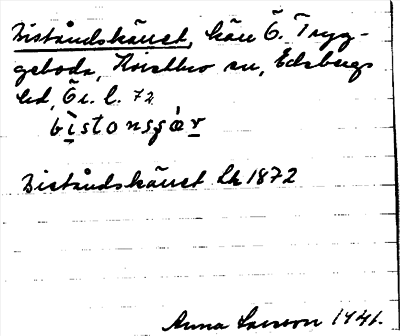 Biståndskäret, kärr Ö. Tryg-
geboda, Kvistbro sn, Edsbergs
hd, Ör. l. 72
bistonsçær
Biståndskäret Lk 1872
Anna Larsson 1941.